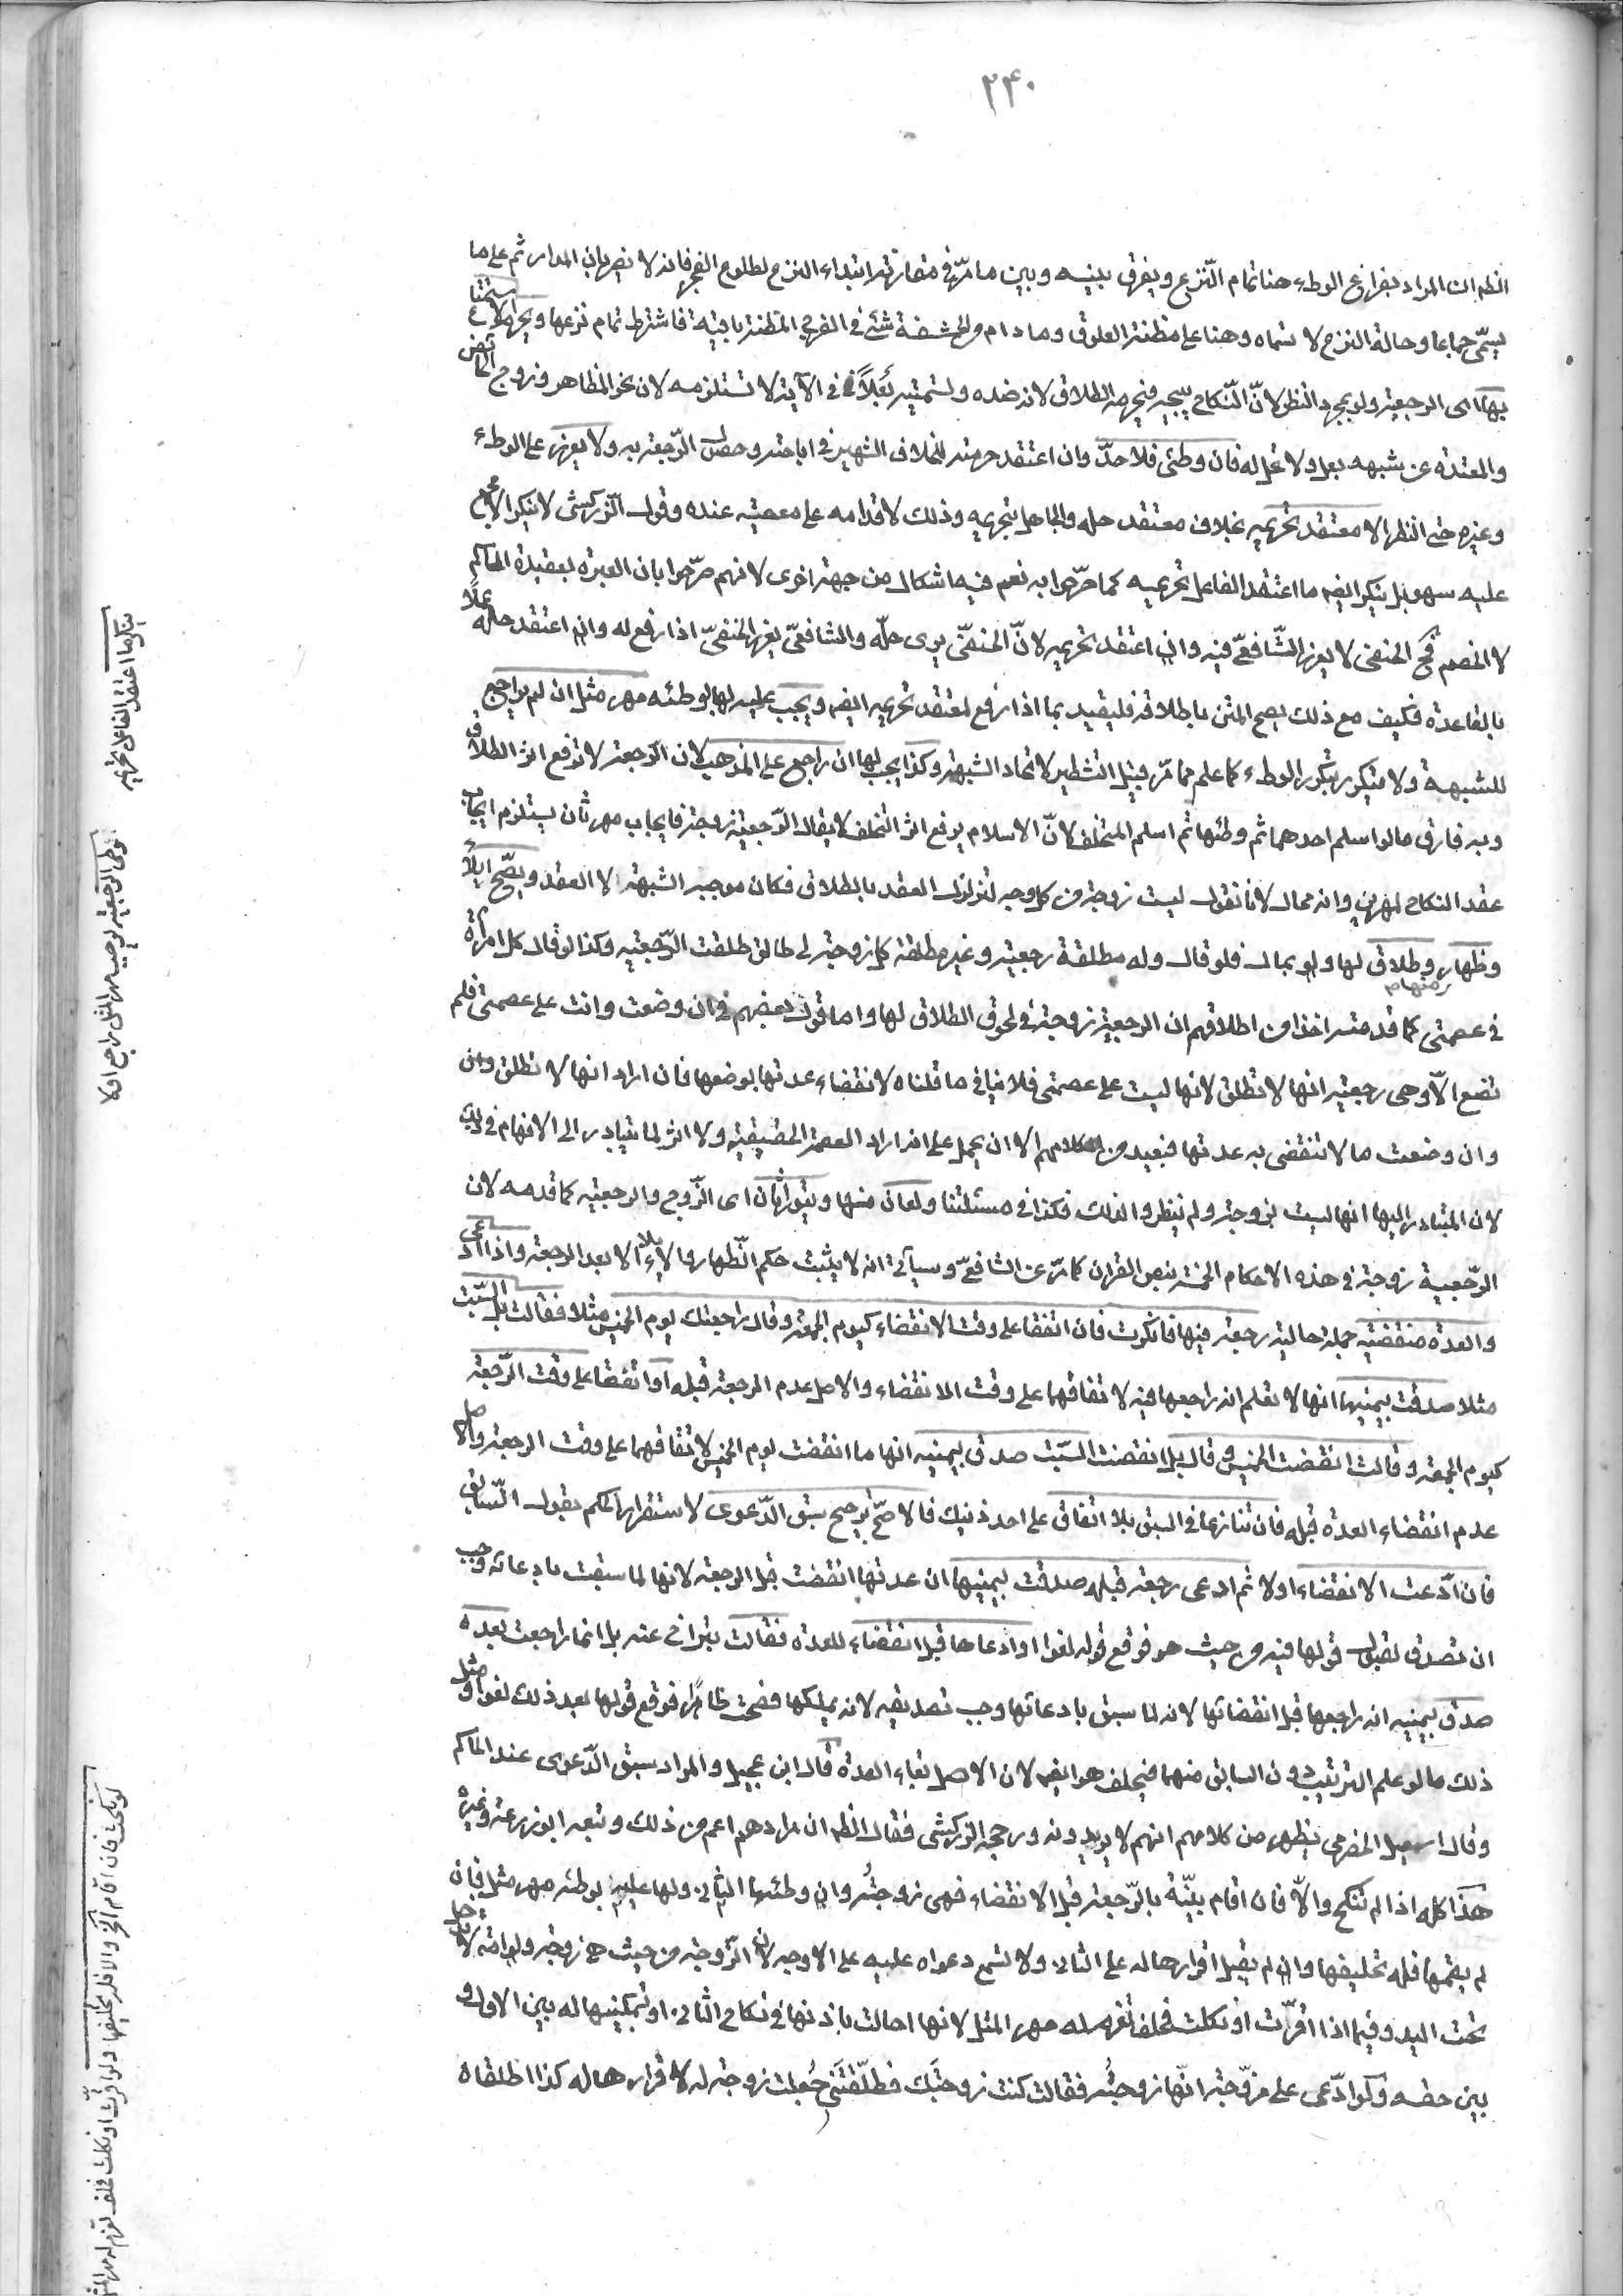 ٢٤٠
الظم ان المراد بفراغ الوطء هنا تمام النزع ويفرق بينه وبين ما مرّ في مقارنة ابتداء النزع لطلوع الفجر فانه لا يضر بان المدار ثم على ما
يسمّى جماعا وحالة النزع لا تسماه وهنا على مظنة العلوق وما دام من الحشفة شئ في الفرج المظنة باقية فاشترط تمام نزعها ويحرم الاستمتاع
بها اى الرجعية ولو بمجرد النظر لانّ النّكاح يبيحه فيحرمه الطلاق لانه ضده وتسميته بَعْلاً في الآية لا تستلزمه لان نحو المظاهر وزوج الحائض
والمعتدة عن شبهه بعل ولا تحل له فان وطئ فلا حدّ وان اعتقد حرمته للخلاف الشهير في اباحته وحصول الرّجعة به ولا يعزر على الوطء
وغيره حتى النظر الا معتقد تحريمه بخلاف معتقد حله والجاهل بتحريمه وذلك لاقدامه على معصية عنده وقول الزركشى لا ينكر الا مجمع
عليه سهو بل ينكر ايضم ما اعتقد الفاعل تحريمه كما صرّحوا به نعم فيه اشكال من جهة اخرى لانهم صرّحوا بان العبرة بعقيدة الحاكم
لا الخصم فح الحنفى لا يعزر الشّافعىّ فيه وان اعتقد تحريمه لانّ الحنفىّ يرى حلّه والشافعىّ يعزر الحنفىّ اذا رفع له وان اعتقد حله عملًا
بالقاعدة فكيف مع ذلك يصح المتن باطلاقه فليقيد بما اذا رفع لمعتقد تحريمه ايضم ويجب عليه لها بوطئه مهر مثل ان لم يراجع
للشبهة ولا يتكرر بتكرر الوطء كما علم مما مرّ قبيل التشطير لاتحاد الشبهة وكذا يجب لها ان راجع على المذهب لان الرّجعة لا ترفع اثر الطلاق
وبه فارق ما لو اسلم احدهما ثم وطئها ثم اسلم المتخلف لانّ الاسلام يرفع اثر التخلف لا يقال الرّجعية زوجة فايجاب مهر ثان يستلزم ايجاب
عقد النكاح لمهرين وانه محال لانا نقول ليست زوجة من كل وجه لتزلزل العقد بالطلاق فكان موجبه الشبهة لا العقد ويصّح ايلاء
وظهار وطلاق لها ولو بمال فلو قال وله مطلقة رجعية وغير مطلقة كل زوجة لى طالق طلقت الرّجعية وكذا لو قال كل امرأة
في عصمتى كما قدمته اخذا من اطلاقهم ان الرجعية زوجة ولحوق الطلاق لها واما قول بعضهم في ان وضعت وانت على عصمتى فلم
تضع الّا وهى رجعية انها لا تطلق لانها ليست على عصمتى فلا ينافي ما قلناه لانقضاء عدتها بوضعها فان اراد انها لا تطلق وان
وان وضعت ما لا تنقضى به عدتها فبعيد من كلامهم الا ان يحمل على انه اراد العصمة الحقيقية ولا اثر لما يتبادر الى الافهام في ذلك
لان المتبادر اليها انها ليست بزوجة ولم ينظروا لذلك فكذا في مسئلتنا ولعان منها ويتوارثان اى الزّوج والرجعية كما قدمه لان
الرّجعية زوجة في هذه الاحكام الخمسة بنص القران كما مرّ عن الشافعىّ وسيأتي انه لا يثبت حكم الظهار والايلاء الا بعد الرجعة واذا ادعى
والعدة منقضية جملة حالية رجعة فيها فانكرت فان اتفقا على وقت الانقضاء كيوم الجمعة وقال راجعتك يوم الخميس مثلا فقالت بل السّبت
مثلا صدقت بيمينها انها لا تعلم انه راجعها فيه لاتفاقهما على وقت الانقضاء والاصل عدم الرجعة قبله او اتفقا على وقت الرّجعة
كيوم الجمعة وقالت انقضت الخميس وقال بل انقضت السّبت صدق بيمينه انها ما انقضت يوم الخميس لاتفاقهما على وقت الرجعة والاصل
عدم انقضاء العدة قبله فان تنازعا في السبق بلا اتفاق على احد ذينك فالاصحّ ترجيح سبق الدّعوى لاستقرار الحكم بقول السّابق
فان ادّعت الانقضاء اولا ثم ادعى رجعة قبله صدقت بيمينها ان عدتها انقضت قبل الرجعة لانها لما سبقت بادعائه وجب
ان تصدق لقبول قولها فيه من حيث هو فوقع قوله لغوا او ادعاها قبل انقضاء للعدة فقالت بتراخ عنه بل انما راجعت بعده
صدق بيمينه انه راجعها قبل انقضائها لانه لما سبق بادعائها وجب تصديقه لانه يملكها فصحت ظاهرا فوقع قولها بعد ذلك لغوا ومثل
ذلك ما لو علم الترتيب دون السابق منهما فيحلف هو ايضم لان الاصل بقاء العدة قال ابن عجيل والمراد سبق الدّعوى عند الحاكم
وقال اسمعيل الحضرمى يظهر من كلامهم انهم لا يريدونه ورجحه الزركشى فقال الظم ان مرادهم اعم من ذلك وتبعه ابو زرعة وغيره
هذا كله اذا لم تنكح والّا فان اقام بيّنة بالرّجعة قبل الانقضاء فهى زوجتُه وان وطئها الثاني ولها عليه بوطئه مهر مثل فان
لم يقمها فله تحليفها وان لم يقبل اقرارها له على الثاني ولا تسمع دعواه عليه على الاوجه لان الزّوجة من حيث هي زوجة ولو امة لا تدخل
تحت اليد وفيما اذا اقرّت او نكلت فحلف تغرم له مهر المثل لانها احالت باذنها في نكاح الثاني او تمكينها له بين الاول و
بين حقه ولو ادّعى على مزوّجة انّها زوجتُه فقالت كنت زوجتَك فطلّقْتَنى جُعلت زوجة له لاقرارها له كذا اطلقاه
ينكر ما اعتقد الفاعل تحريمه